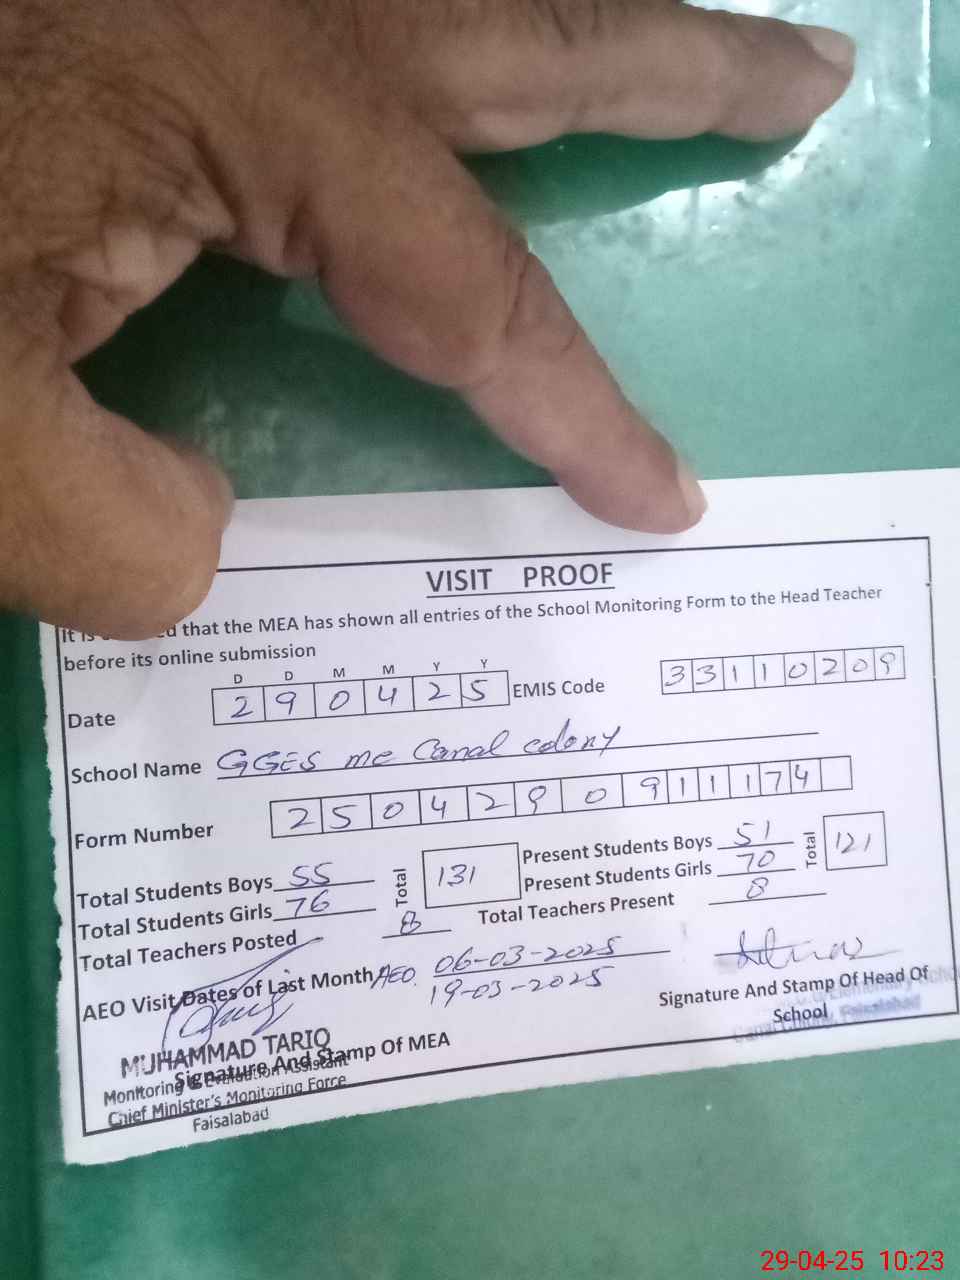 VISIT PROOF
It is that the MEA has shown all entries of the School Monitoring Form to the Head Teacher
before its online submission
D D M M Y Y
Date 2 9 0 4 2 5 EMIS Code 3 3 1 1 0 2 0 9
School Name GGES mc Canal colony
Form Number 2 5 0 4 2 9 0 9 1 1 1 7 4
Total Students Boys 55 Total 131 Present Students Boys 51 Total 121
Total Students Girls 76 Present Students Girls 70
Total Teachers Posted 8 Total Teachers Present 8
AEO Visit Dates of Last Month AEO. 06-03-2025
19-03-2025
Signature And Stamp Of Head Of
School
Canal Colony, Faisalabad
MUHAMMAD TARIQ
Signature And Stamp Of MEA
Monitoring & Evaluation Assistant
Chief Minister's Monitoring Force
Faisalabad
29-04-25 10:23